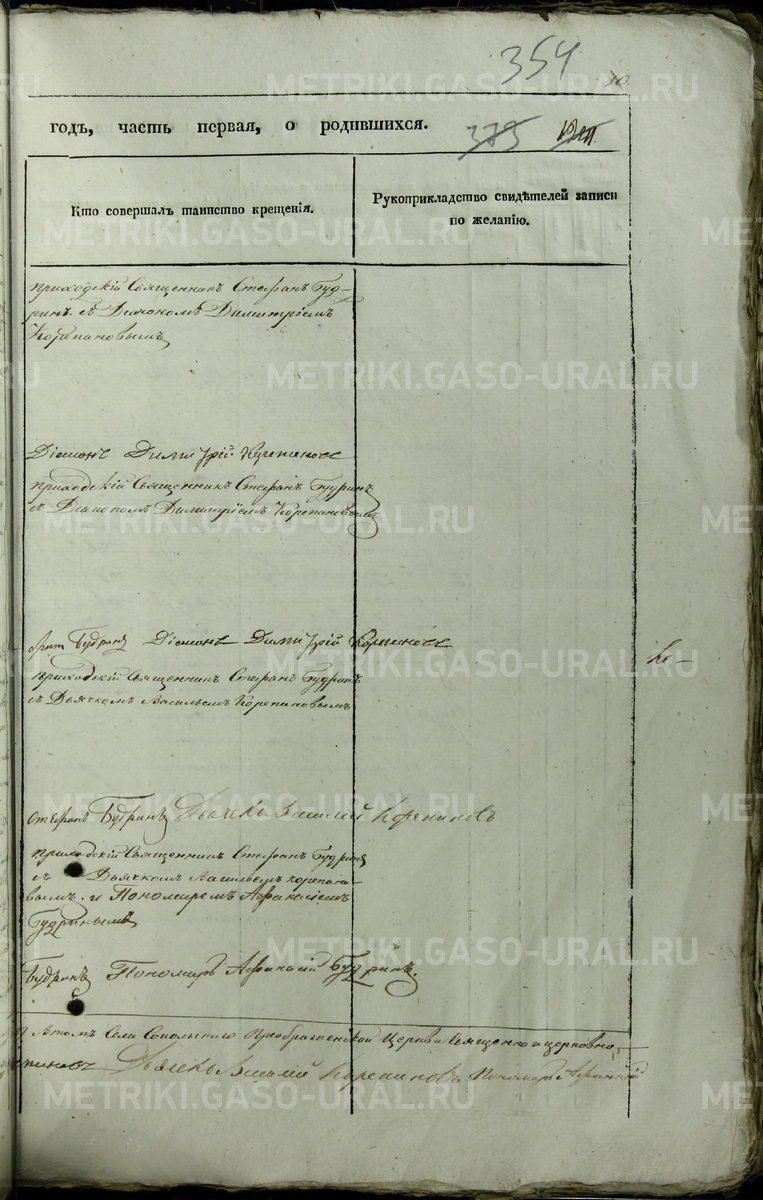 354
10.
годъ, часть первая, о родившихся.
375
Кто совершалъ таинство крещенія.
Рукоприкладство свидѣтелей записи по желанію.
приходскій Священникъ Стефанъ Буд-
ринъ. съ Діакономъ Димитріемъ
Корепановымъ
Діаконъ Димитрій Корепановъ
приходскій Священникъ Стефанъ Будринъ
съ Діакономъ Димитріемъ Корепановымъ
Будринъ Діаконъ Димитрій Корепановъ
приходскій Священникъ Стефанъ Будринъ
съ Дьячкомъ Васильемъ Корепановымъ
Стефанъ Будринъ Дьячекъ Василий Корепановъ
приходскій Священникъ Стефанъ Будринъ
съ Дьячкомъ Васильемъ Корепано-
вымъ. и Пономаремъ Афанасіемъ
Будринымъ
Будринъ Пономарь Афанасій Будринъ.
Села Сокольскаго Преображенской Церкви Священно и церковно
Дьячекъ Василий Корепановъ Пономарь Афанасій
METRIKI.GASO-URAL.RU